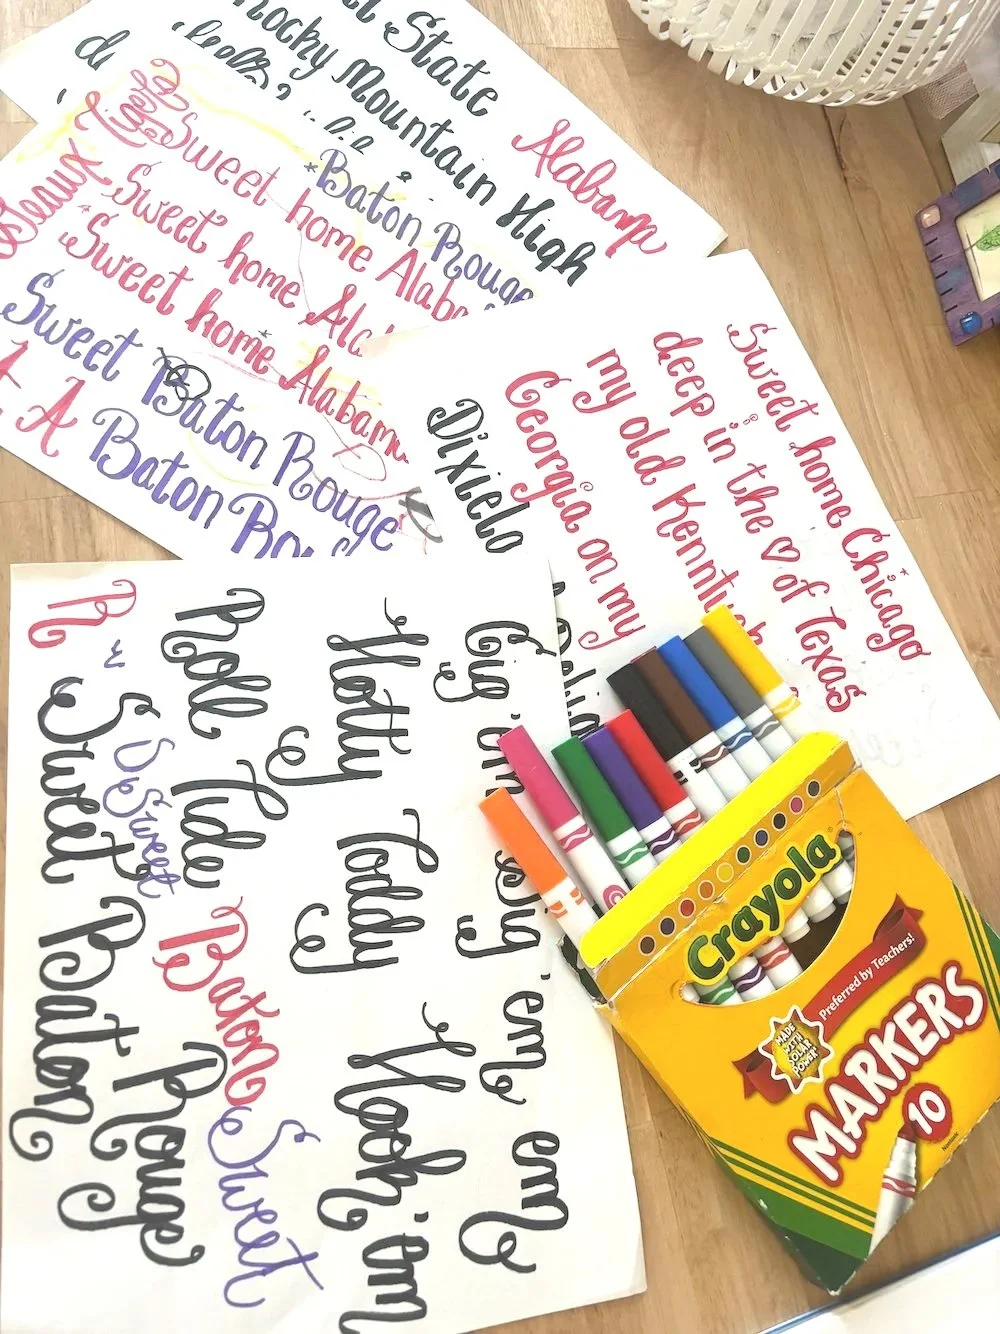 State
Rocky Mountain High
Alabama
Sweet home
Alaba
*Baton Rouge
Sweet home
Sweet home Alabam
Sweet Baton Rouge
A Baton Ro
Texas
Sweet home Chicago
deep in the ♡ of Texas
my old
Georgia on my
Dixielan
Gig 'em
Gig 'em
em
Hotty Toddy
Hook 'em
Roll Tide
Baton
Sweet
Sweet
Sweet Baton Rouge
Baton
R
Crayola
Preferred by Teachers!
MADE WITH SOLAR POWER*
MARKERS
10